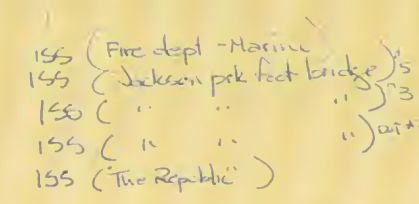 155 (Fire dept - Marine
155 (Jackson prk foot bridge)^5
155 ( " " " )^3
155 ( " " " )
155 ("The Republic")